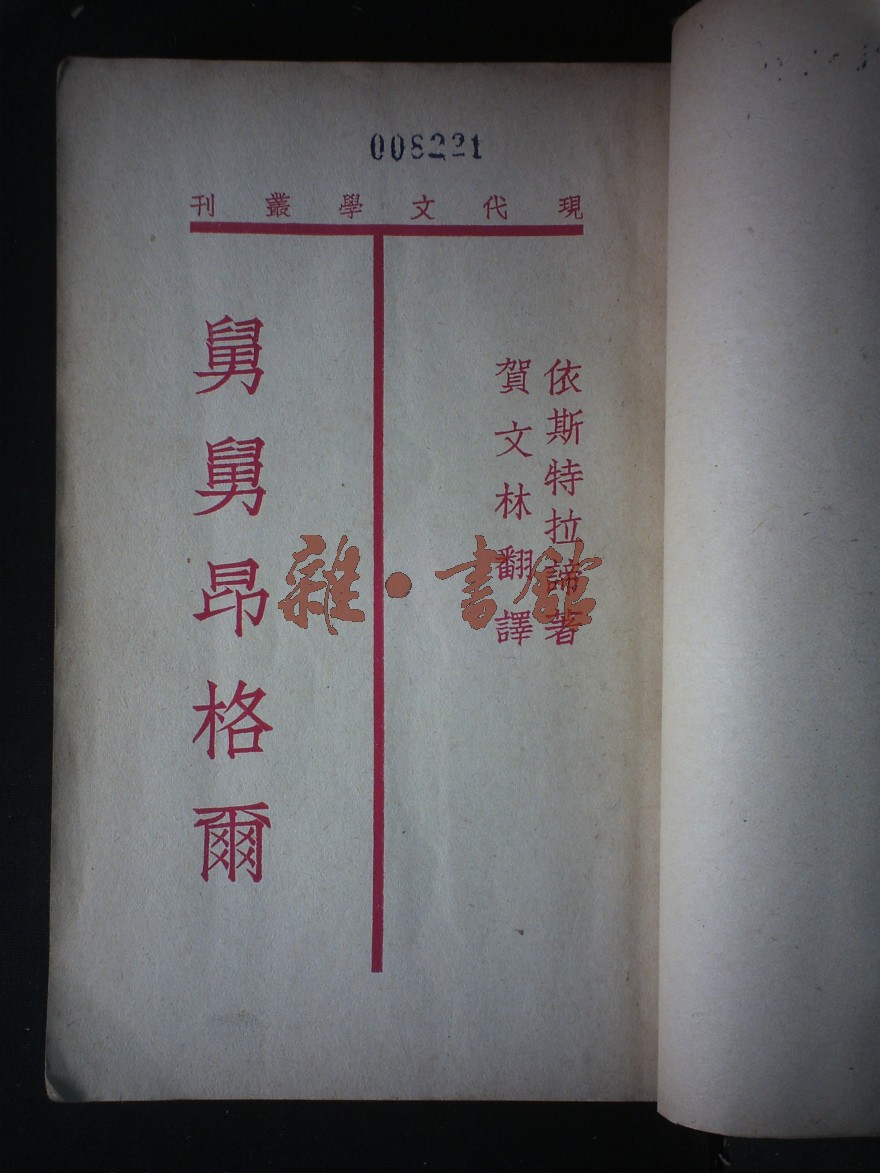 008221
現代文學叢刊
依斯特拉諦著
賀文林翻譯
舅舅昂格爾
雜·書館